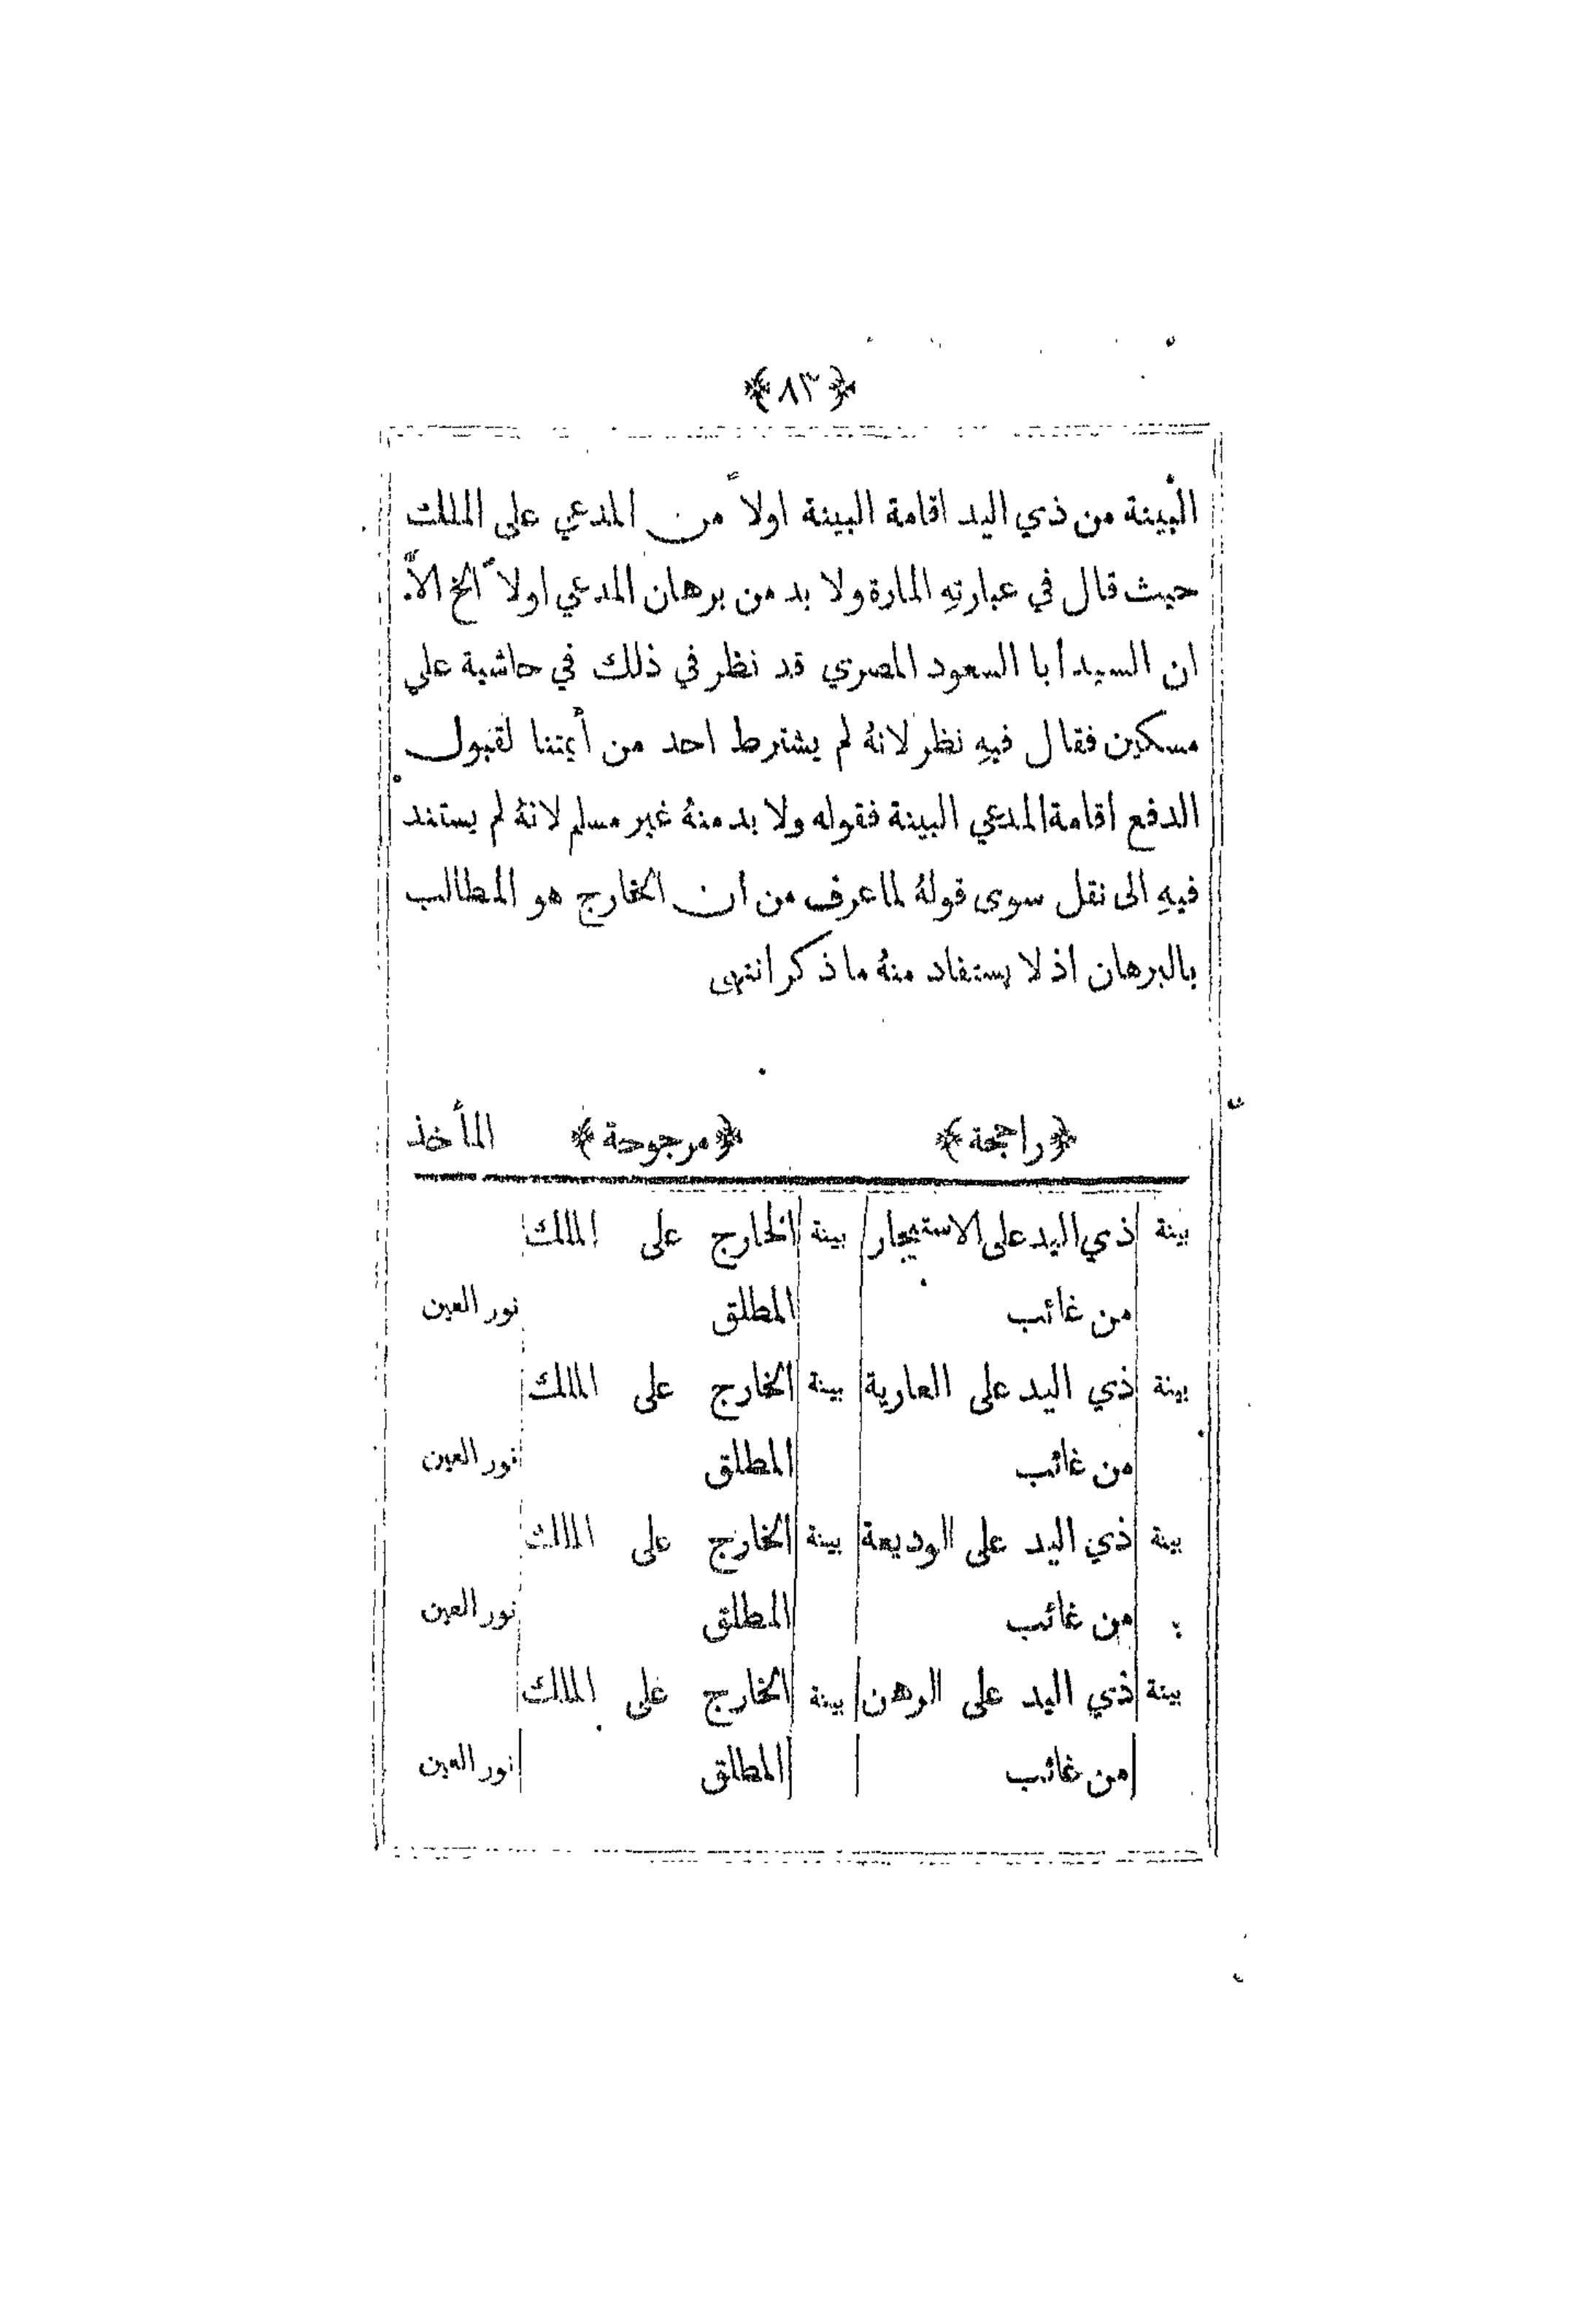 ﴿٨٣﴾
البينة من ذي اليد اقامة البينة اولاً من المدعي على الملك
حيث قال في عبارتهِ المارة ولا بد من برهان المدعي اولاً الخ الاّ
ان السيد أبا السعود المصري قد نظر في ذلك في حاشية على
مسكين فقال فيهِ نظر لانهُ لم يشترط احد من أيمتنا لقبول
الدفع اقامة المدعي البينة فقوله ولا بد منهُ غير مسلم لانهُ لم يستند
فيهِ الى نقل سوى قولهُ لما عرف من ان الخارج هو المطالب
بالبرهان اذ لا يستفاد منهُ ما ذكر انتهى
﴿راجحة﴾ ﴿مرجوحة﴾ المأخذ
بينة ذي اليد على الاستيجار بينة الخارج على الملك
من غائب المطلق نور العين
بينة ذي اليد على العارية بينة الخارج على الملك
من غائب المطلق نور العين
بينة ذي اليد على الوديعة بينة الخارج على الملك
من غائب المطلق نور العين
بينة ذي اليد على الرهن بينة الخارج على الملك
من غائب المطلق نور العين